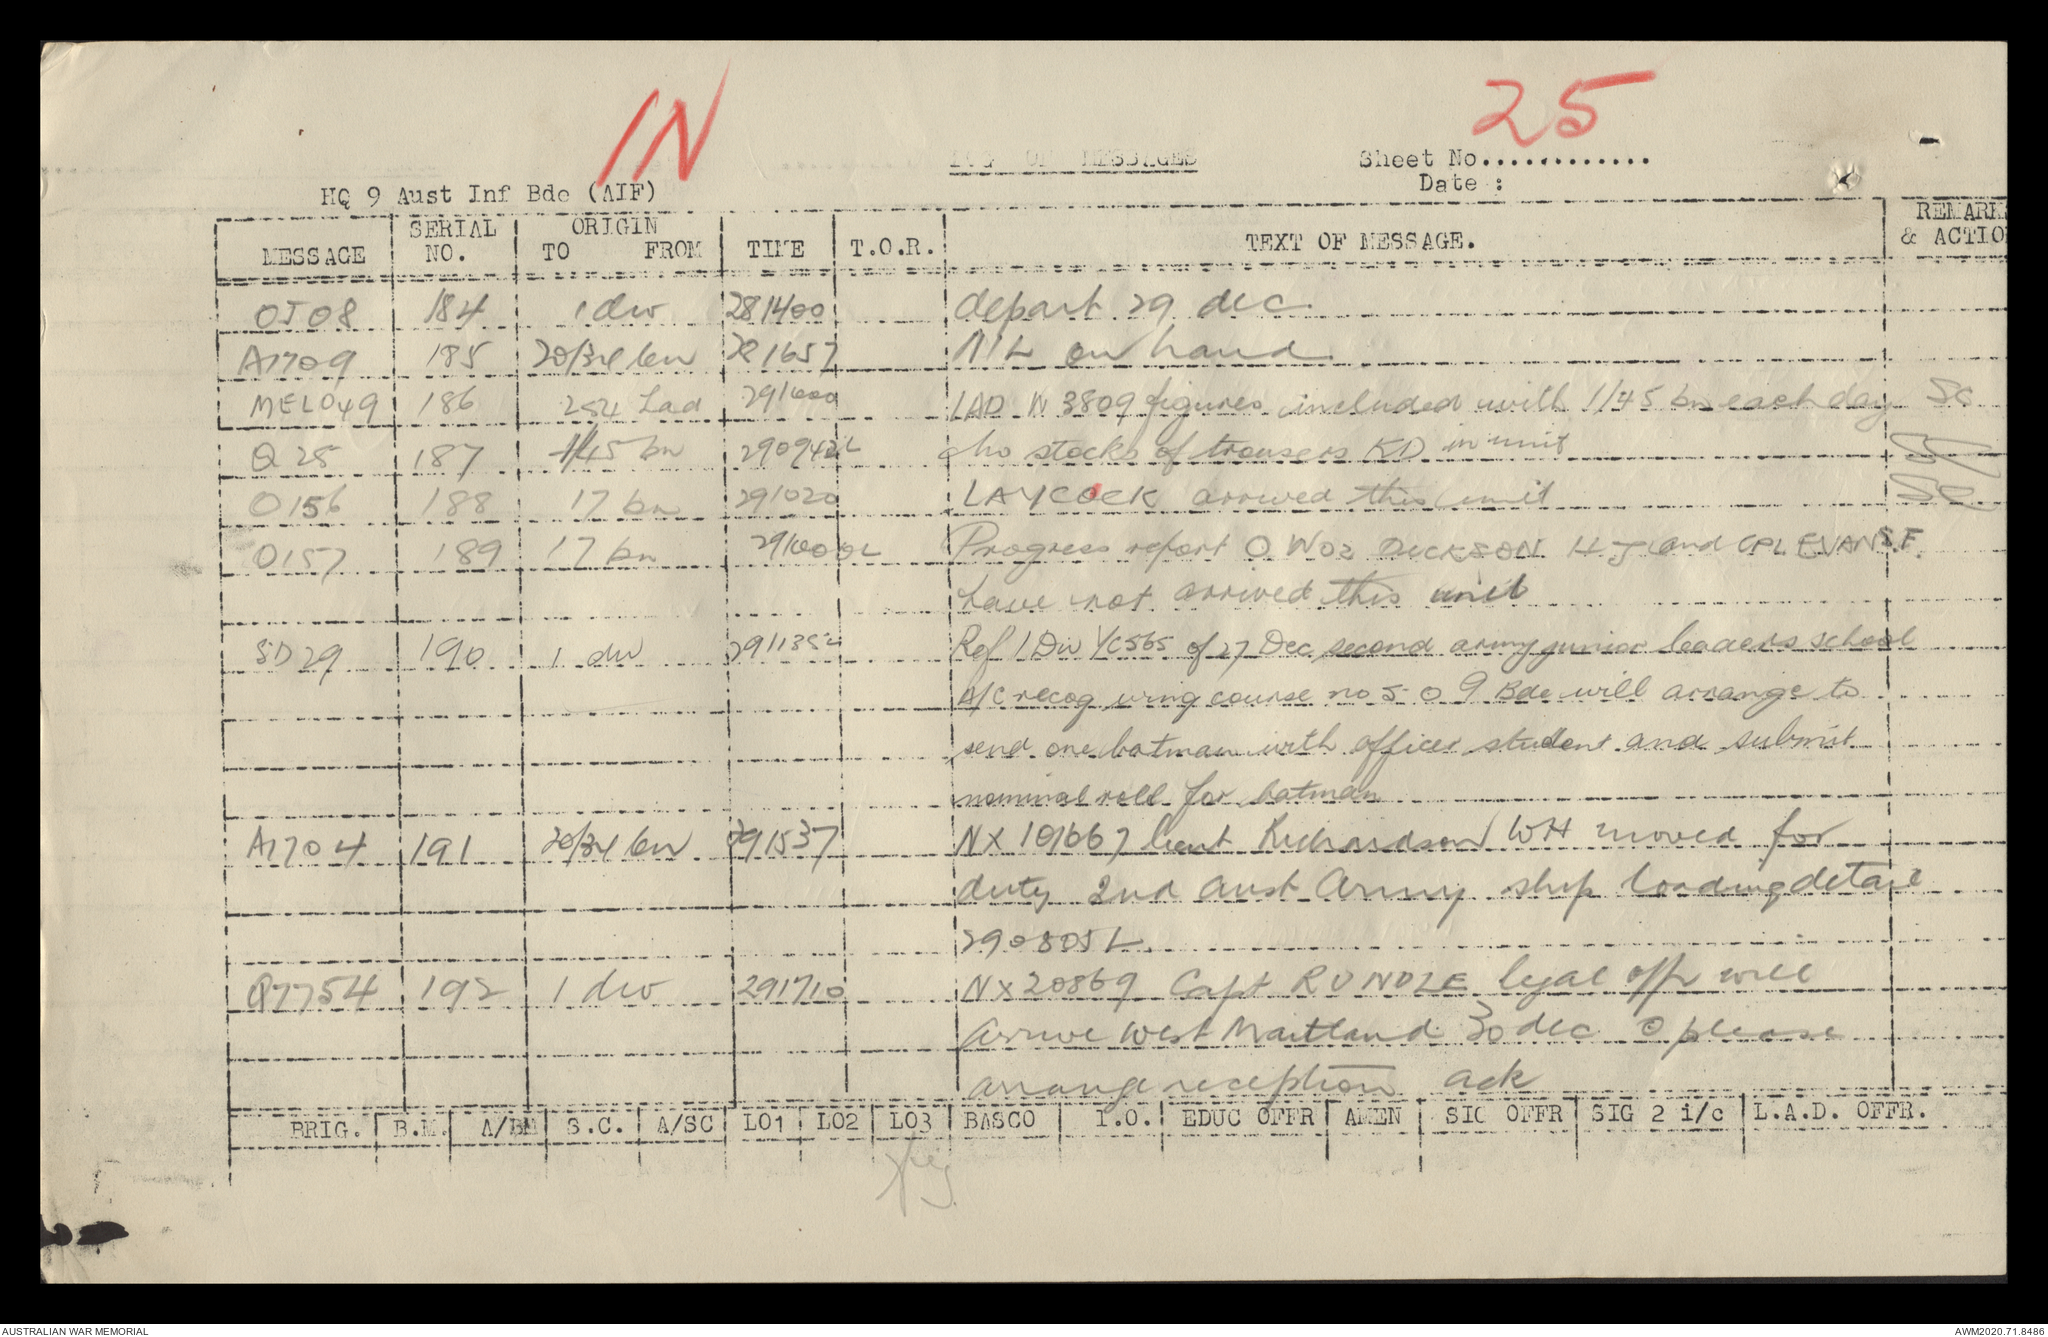 IN
25
LOG OF MESSAGES
Sheet No.............
Date :
HQ 9 Aust Inf Bde (AIF)
MESSAGE SERIAL NO. ORIGIN TO FROM TIME T.O.R. TEXT OF MESSAGE. REMARKS & ACTION
OJ08 184 1 div 281400 depart 29 dec
A1709 185 20/34 bn 281657 NIL on hand
MELO49 186 254 Lad 291000 LAD W 3809 figures included with 1/45 bn each day Sc
Q 25 187 1/45 bn 290942L No stocks of trousers KD in unit
O156 188 17 bn 291020 LAYCOCK arrived this unit Sc
O157 189 17 bn 291000L Progress report O WO2 DICKSON H J and CPL EVANS F.
have not arrived this unit
SD29 190 1 div 291135L Ref 1 Div YC565 of 27 Dec second army junior leaders school
A/C recog wing course no 5 O 9 Bde will arrange to
send one batman with officer student and submit
nominal roll for batman
A1704 191 20/34 bn 291537 NX 101667 lieut Richardson WH moved for
duty 2nd aust army ship loading detail
290805L
Q7754 192 1 div 291710 NX20869 Capt RUNDLE legal offr will
arrive west Maitland 30 dec O please
arrange reception ack
BRIG. B.M. A/BM S.C. A/SC LO1 LO2 LO3 BASCO I.O. EDUC OFFR AMEN SIG OFFR SIG 2 i/c L.A.D. OFFR.
AUSTRALIAN WAR MEMORIAL
AWM2020.71.8486